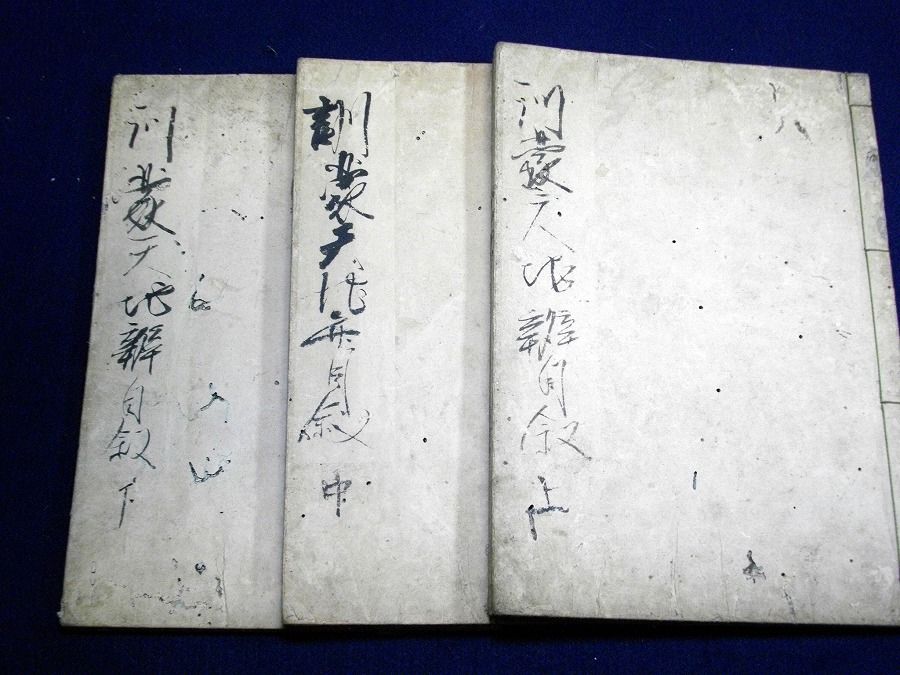 訓蒙天地辨自叙 上
訓蒙天地弁自叙 中
訓蒙天地辨自叙 下